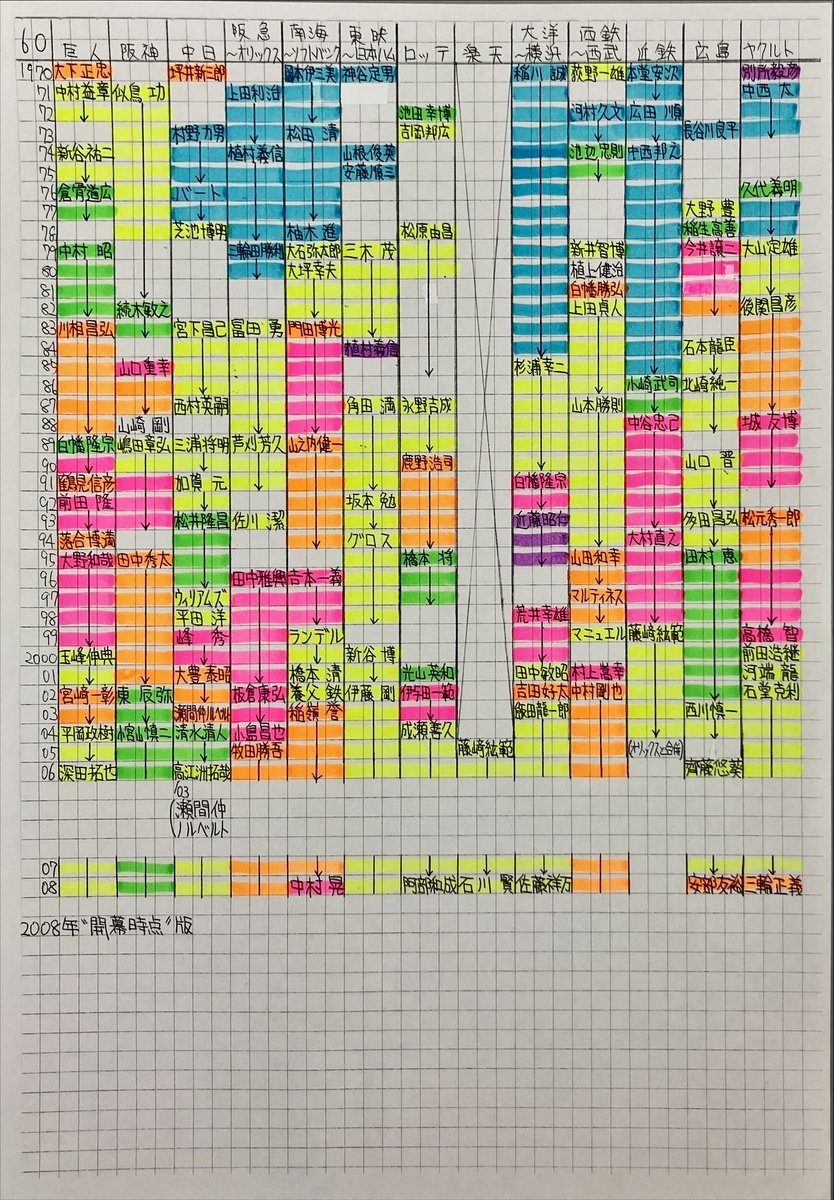 阪急 南海 東映 大洋 西鉄
60 巨人 阪神 中日 ～オリックス ～ソフトバンク ～日本ハム ロッテ 楽天 ～横浜 ～西武 近鉄 広島 ヤクルト
1970 大下正忠 坪井新三郎 岡本伊三美 神谷定男 稲川誠 荻野一雄 本堂安次 別所毅彦
71 中村益章 似鳥功 上田利治 中西太
72 池田幸博 河村久文 広田順
73 村野力男 松田清 吉岡邦広 長谷川良平
74 新谷祐二 植村義信 山根俊英 池辺忠則 中西邦之
75 安藤順三
76 倉骨道広 バート 久代義明
77 大野豊
78 芝池博明 柚木進 松原由昌 稲生高善
79 中村昭 三輪田勝利 大石弥太郎 三木茂 新井智博 今井譲二 大山定雄
80 大坪幸夫 植上健治
81 白幡勝弘
82 続木敏之 上田貞人 後関昌彦
83 川相昌弘 宮下昌己 冨田勇 門田博光
84 植村義信 石本龍臣
85 山口重幸 杉浦幸二
86 小崎武司 北崎純一
87 西村英嗣 角田満 永野吉成 山本勝則
88 山崎剛 中谷忠己 城友博
89 白幡隆宗 嶋田章弘 三浦将明 芦刈芳久 山之内健一
90 鹿野浩司 山口晋
91 鶴見信彦 加賀元 白幡隆宗
92 前田隆 坂本勉
93 松井隆昌 佐川潔 近藤昭仁 多田昌弘 松元秀一郎
94 落合博満 グロス 大村直之
95 大野和哉 田中秀太 橋本将 山田和幸 田村恵
96 田中雅興 吉本一義
97 ウィリアムズ マルティネス
98 平田洋 荒井幸雄
99 峰秀 ランデル マニュエル 藤崎紘範 高橋智
2000 玉峰伸典 新谷博 前田浩継
01 大豊泰昭 橋本清 光山英和 田中敏昭 村上嵩幸 河端龍
02 宮崎一彰 東辰弥 板倉康弘 養父鉄 伊藤剛 伊与田一範 吉田好太 中村剛也 石堂克利
03 瀬間仲ノルベルト 稲嶺誉 飯田龍一郎 西川慎一
04 平岡政樹 小宮山慎二 清水清人 小島昌也 成瀬善久
05 牧田勝吾 藤崎紘範 (オリックスと合併)
06 深田拓也 高江洲拓哉 齊藤悠葵
'03
(瀬間仲
ノルベルト
07
08 中村晃 阿部和成 石川賢 佐藤祥万 安部友裕 三輪正義
2008年"開幕時点"版